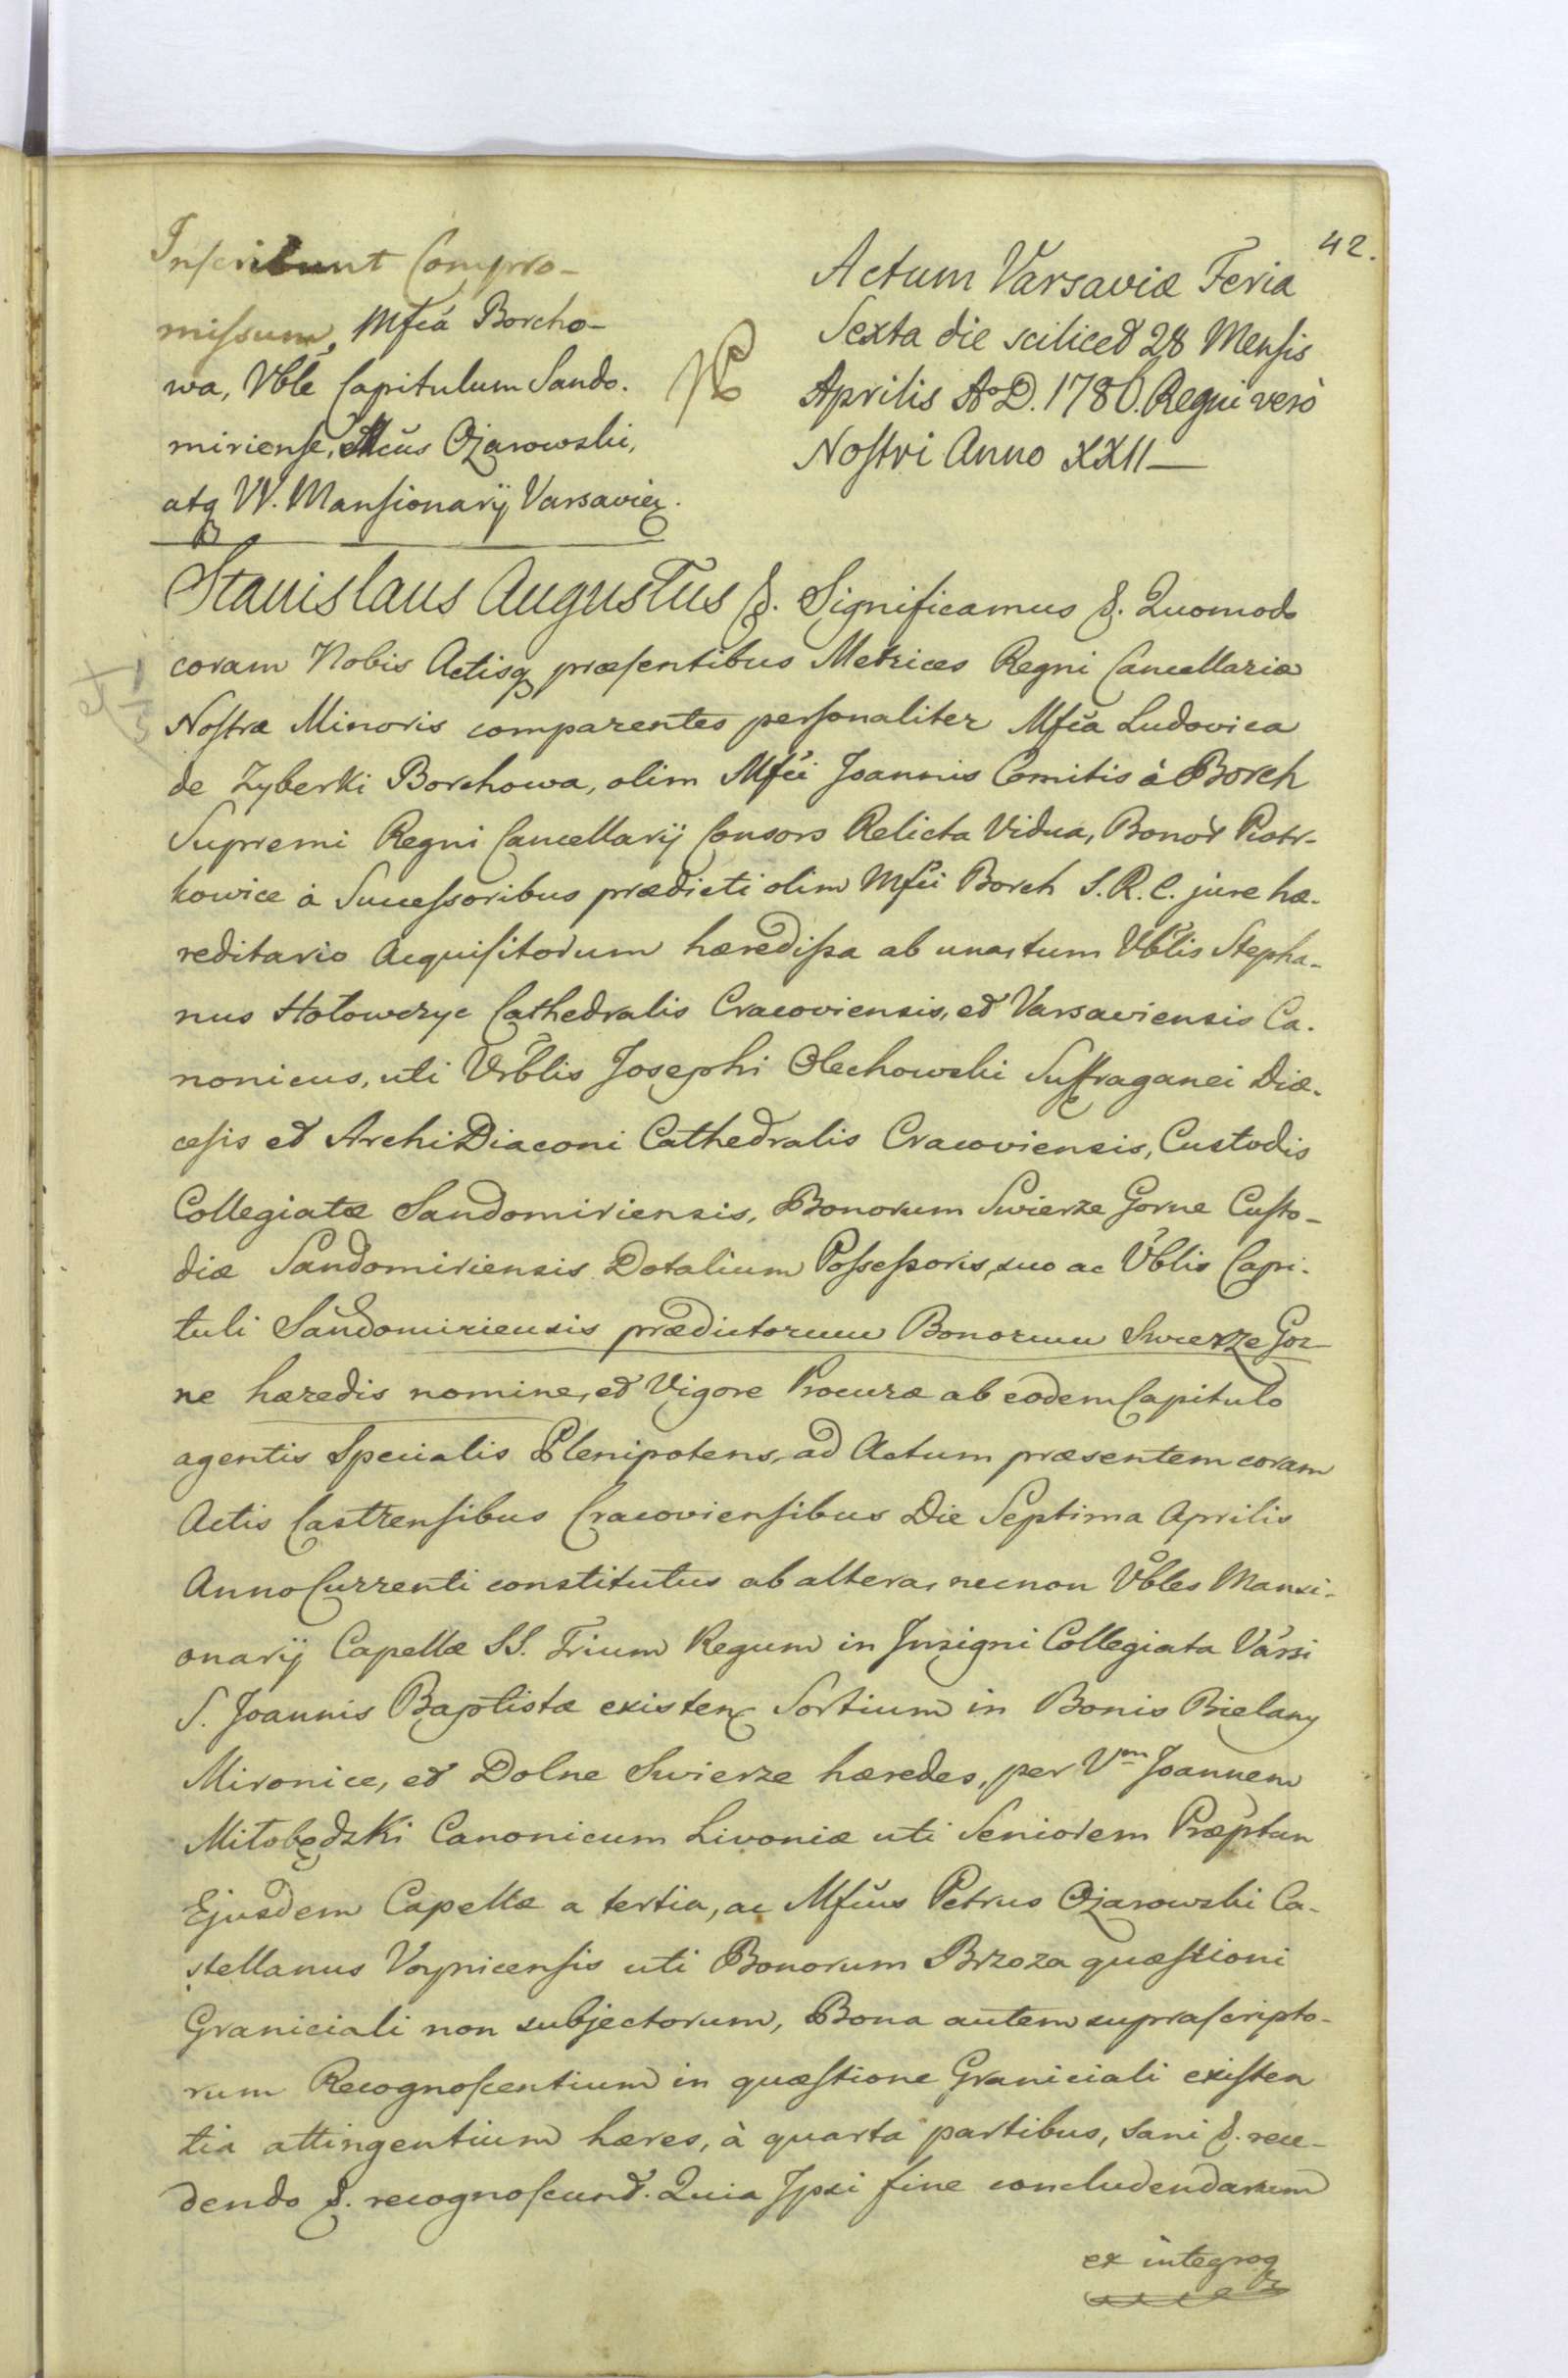 42.
Inscribunt Compro-
missum, Mfca Borcho-
wa, Vble Capitulum Sando-
miriense, Mcus Ożarowski,
atq VV. Mansionarij Varsavien.
Actum Varsaviæ Feria
Sexta die scilicet 28 Mensis
Aprilis A° D. 1780. Regni verò
Nostri Anno XXII—
Stanislaus Augustus &. Significamus &. Quomodo
coram Nobis Actisq præsentibus Metrices Regni Cancellariæ
Nostræ Minoris comparentes personaliter Mfca Ludovica
de Zyberki Borchowa, olim Mfci Joannis Comitis à Borch
Supremi Regni Cancellarij Consors Relicta Vidua, Bonor Piotr-
kowice à Successoribus prædicti olim Mfci Borch S. R. C. jure hæ-
reditario Acquisitorum hæredissa ab una, tum Vblis Stepha-
nus Hołowczyc Cathedralis Cracoviensis, et Varsaviensis Ca-
nonicus, uti Vrblis Josephi Olechowski Suffraganei Diæ-
cesis et ArchiDiaconi Cathedralis Cracoviensis, Custodis
Collegiatæ Sandomiriensis, Bonorum Swierze Gorne Custo-
diæ Sandomiriensis Dotalium Possessoris, suo ac Vblis Capi-
tuli Sandomiriensis prædictorum Bonorum Swierze Gor-
ne hæredis nomine, et Vigore Procuræ ab eodem Capitulo
agentis Specialis Plenipotens, ad Actum præsentem coram
Actis Castrensibus Cracoviensibus Die Septima Aprilis
Anno Currenti constitutus ab altera, necnon Vbles Mansi-
onarij Capellæ SS. Trium Regum in Insigni Collegiata Varsi
S. Joannis Baptistæ existen Sortium in Bonis Bielany
Mironice, et Dolne Swierze hæredes, per Vm Joannem
Miłobędzki Canonicum Livoniæ uti Seniorem Præptum
Ejusdem Capellæ a tertia, ac Mfcus Petrus Ożarowski Ca-
stellanus Voynicensis uti Bonorum Brzoza quæstioni
Graniciali non subjectorum, Bona autem suprascripto-
rum Recognoscentium in quæstione Graniciali existen
tia attingentium hæres, à quarta partibus, sani &. rece-
dendo &. recognoscund. Quia Ipsi fine concludendarum
ex integroq